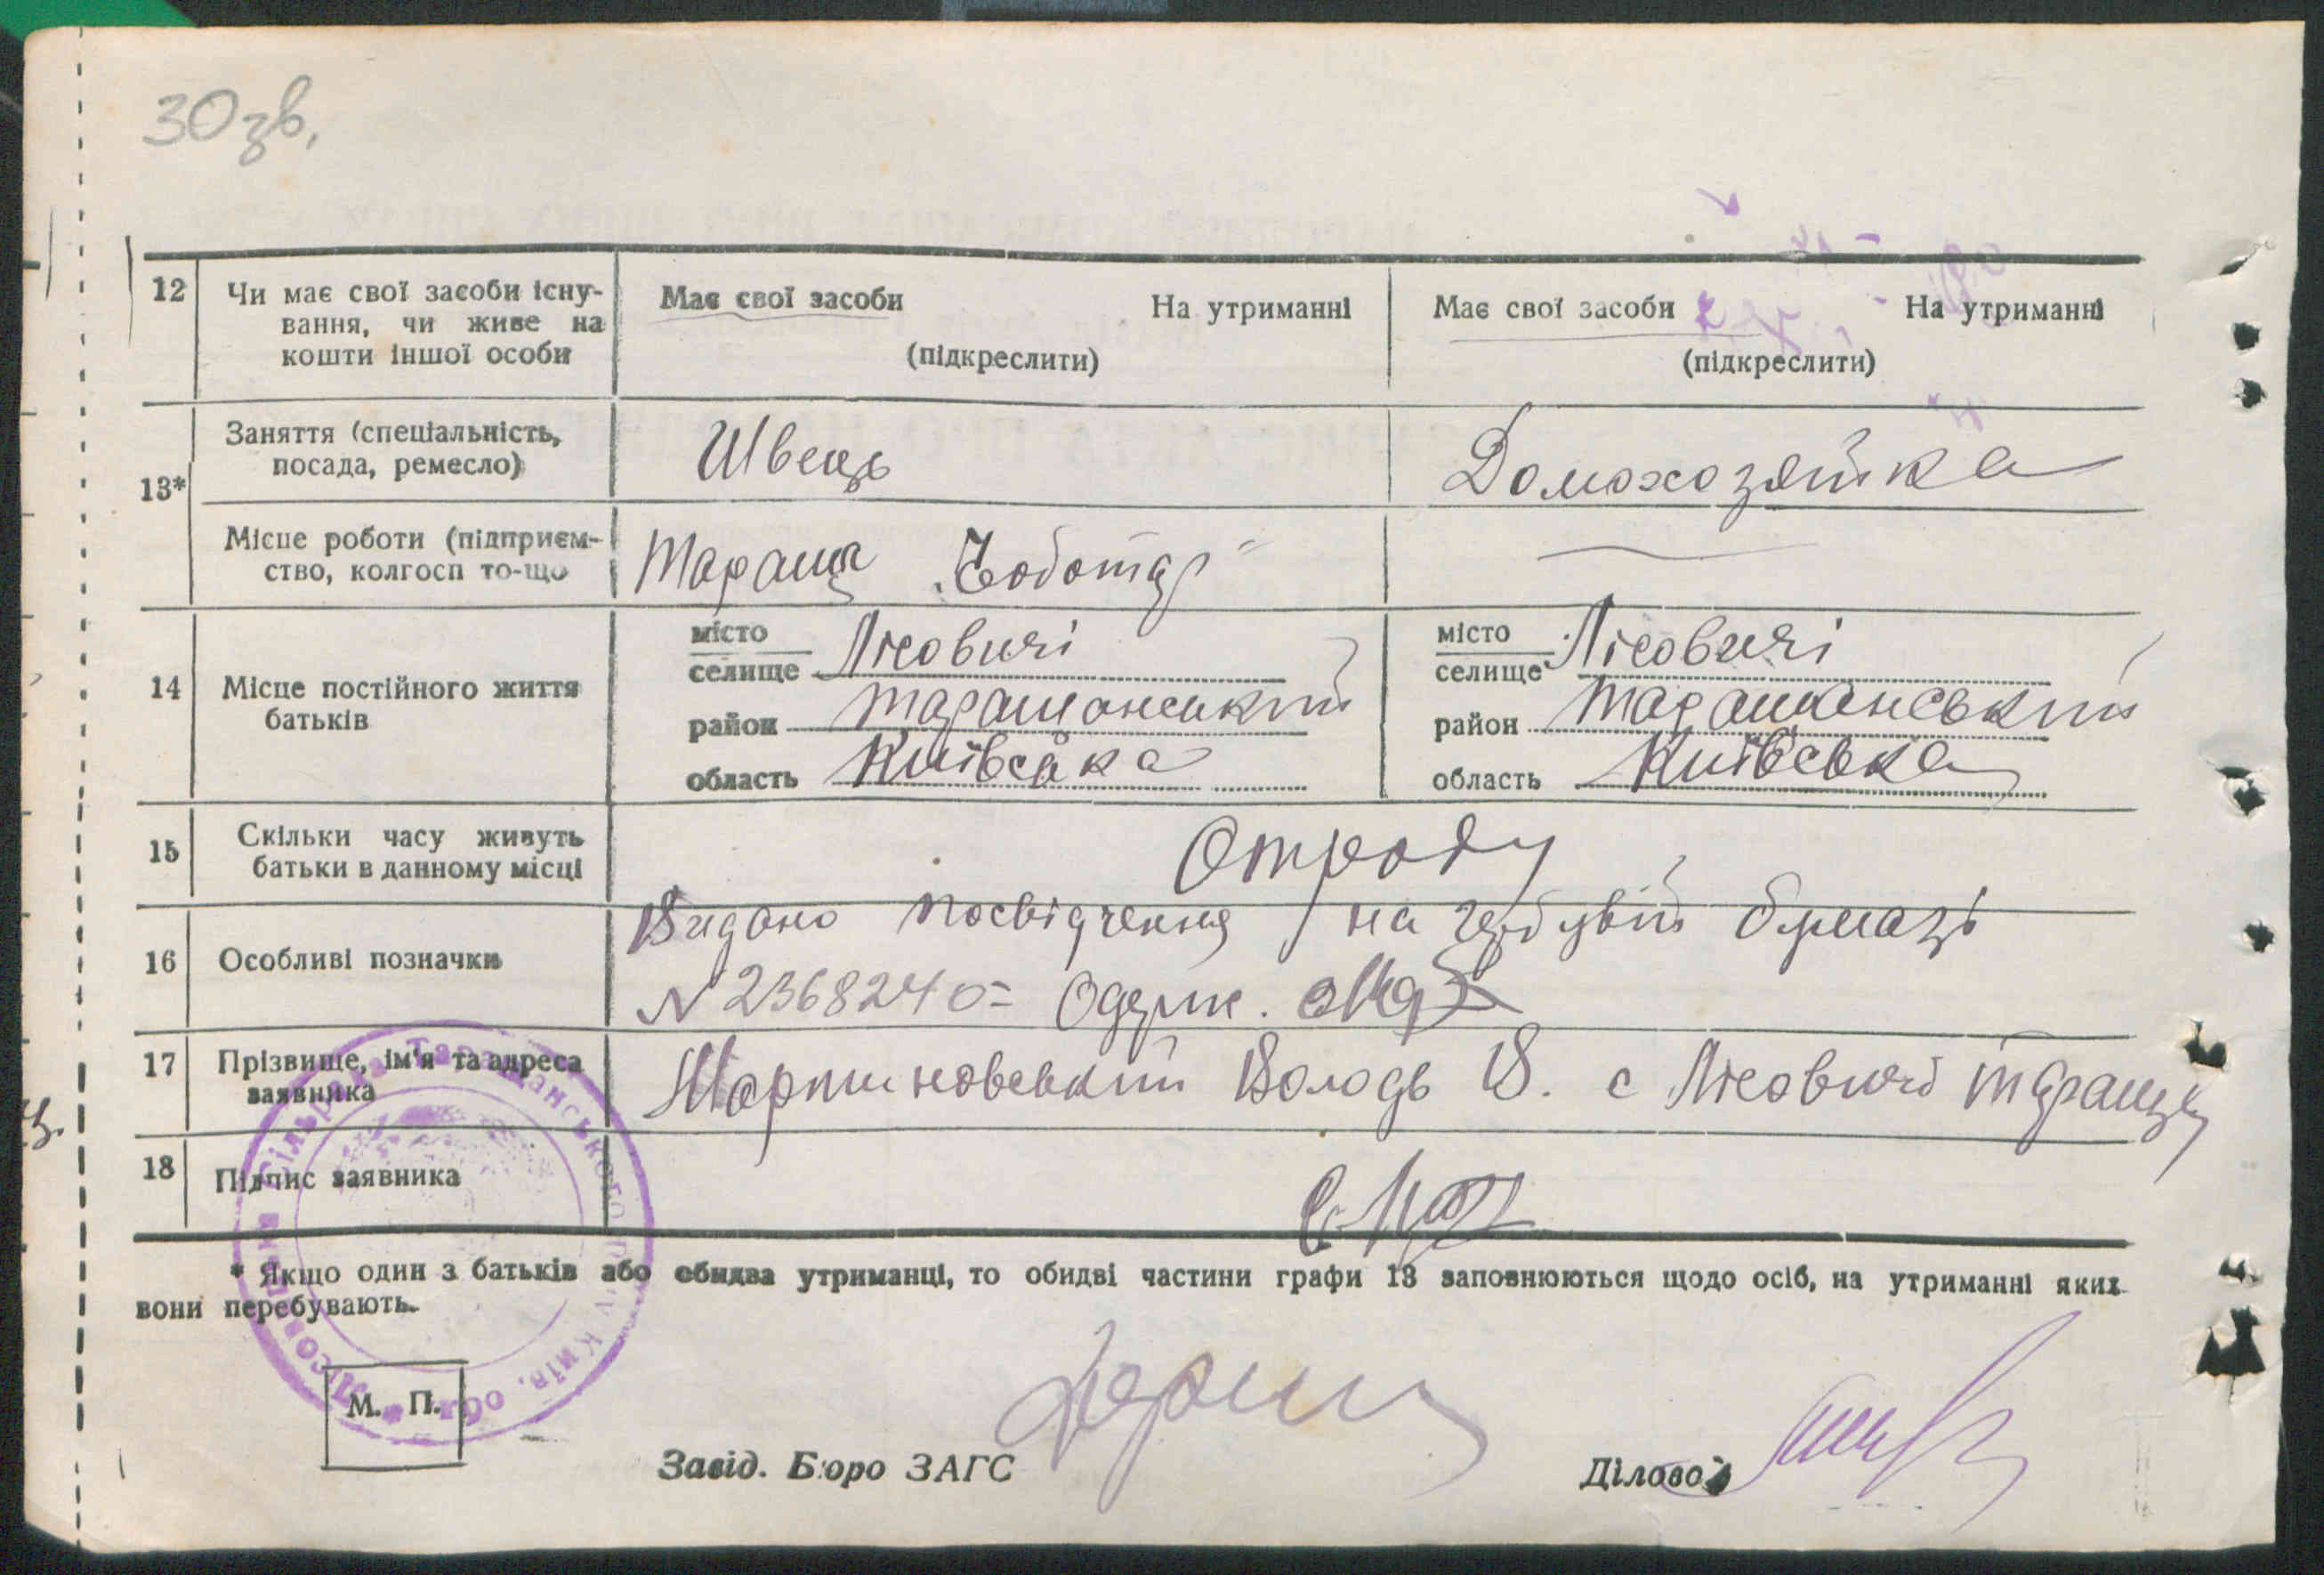 30 зв.
12 Чи має свої засоби існу- Має свої засоби На утриманні Має свої засоби На утриманні
вання, чи живе на
кошти іншої особи (підкреслити) (підкреслити)
13* Заняття (спеціальність, Швець Домохозяйка
посада, ремесло)
Місце роботи (підприєм- Тараща „Чоботар"
ство, колгосп то-що
14 Місце постійного життя батьків
місто
селище Лісовичі
район Таращанський
область Київська
місто
селище Лісовичі
район Таращанський
область Київська
15 Скільки часу живуть Отроду
батьки в данному місці
16 Особливі позначки Видано посвідчення на гербовій бумазі
N 2368240= Одерж.
17 Прізвище, ім'я та адреса
заявника Мартиновський Володь В. с Лісовичі Таращ
18 Підпис заявника
* Якщо один з батьків або обидва утриманці, то обидві частини графи 13 заповнюються щодо осіб, на утриманні яких
вони перебувають.
М. П.
Завід. Бюро ЗАГС Діловод